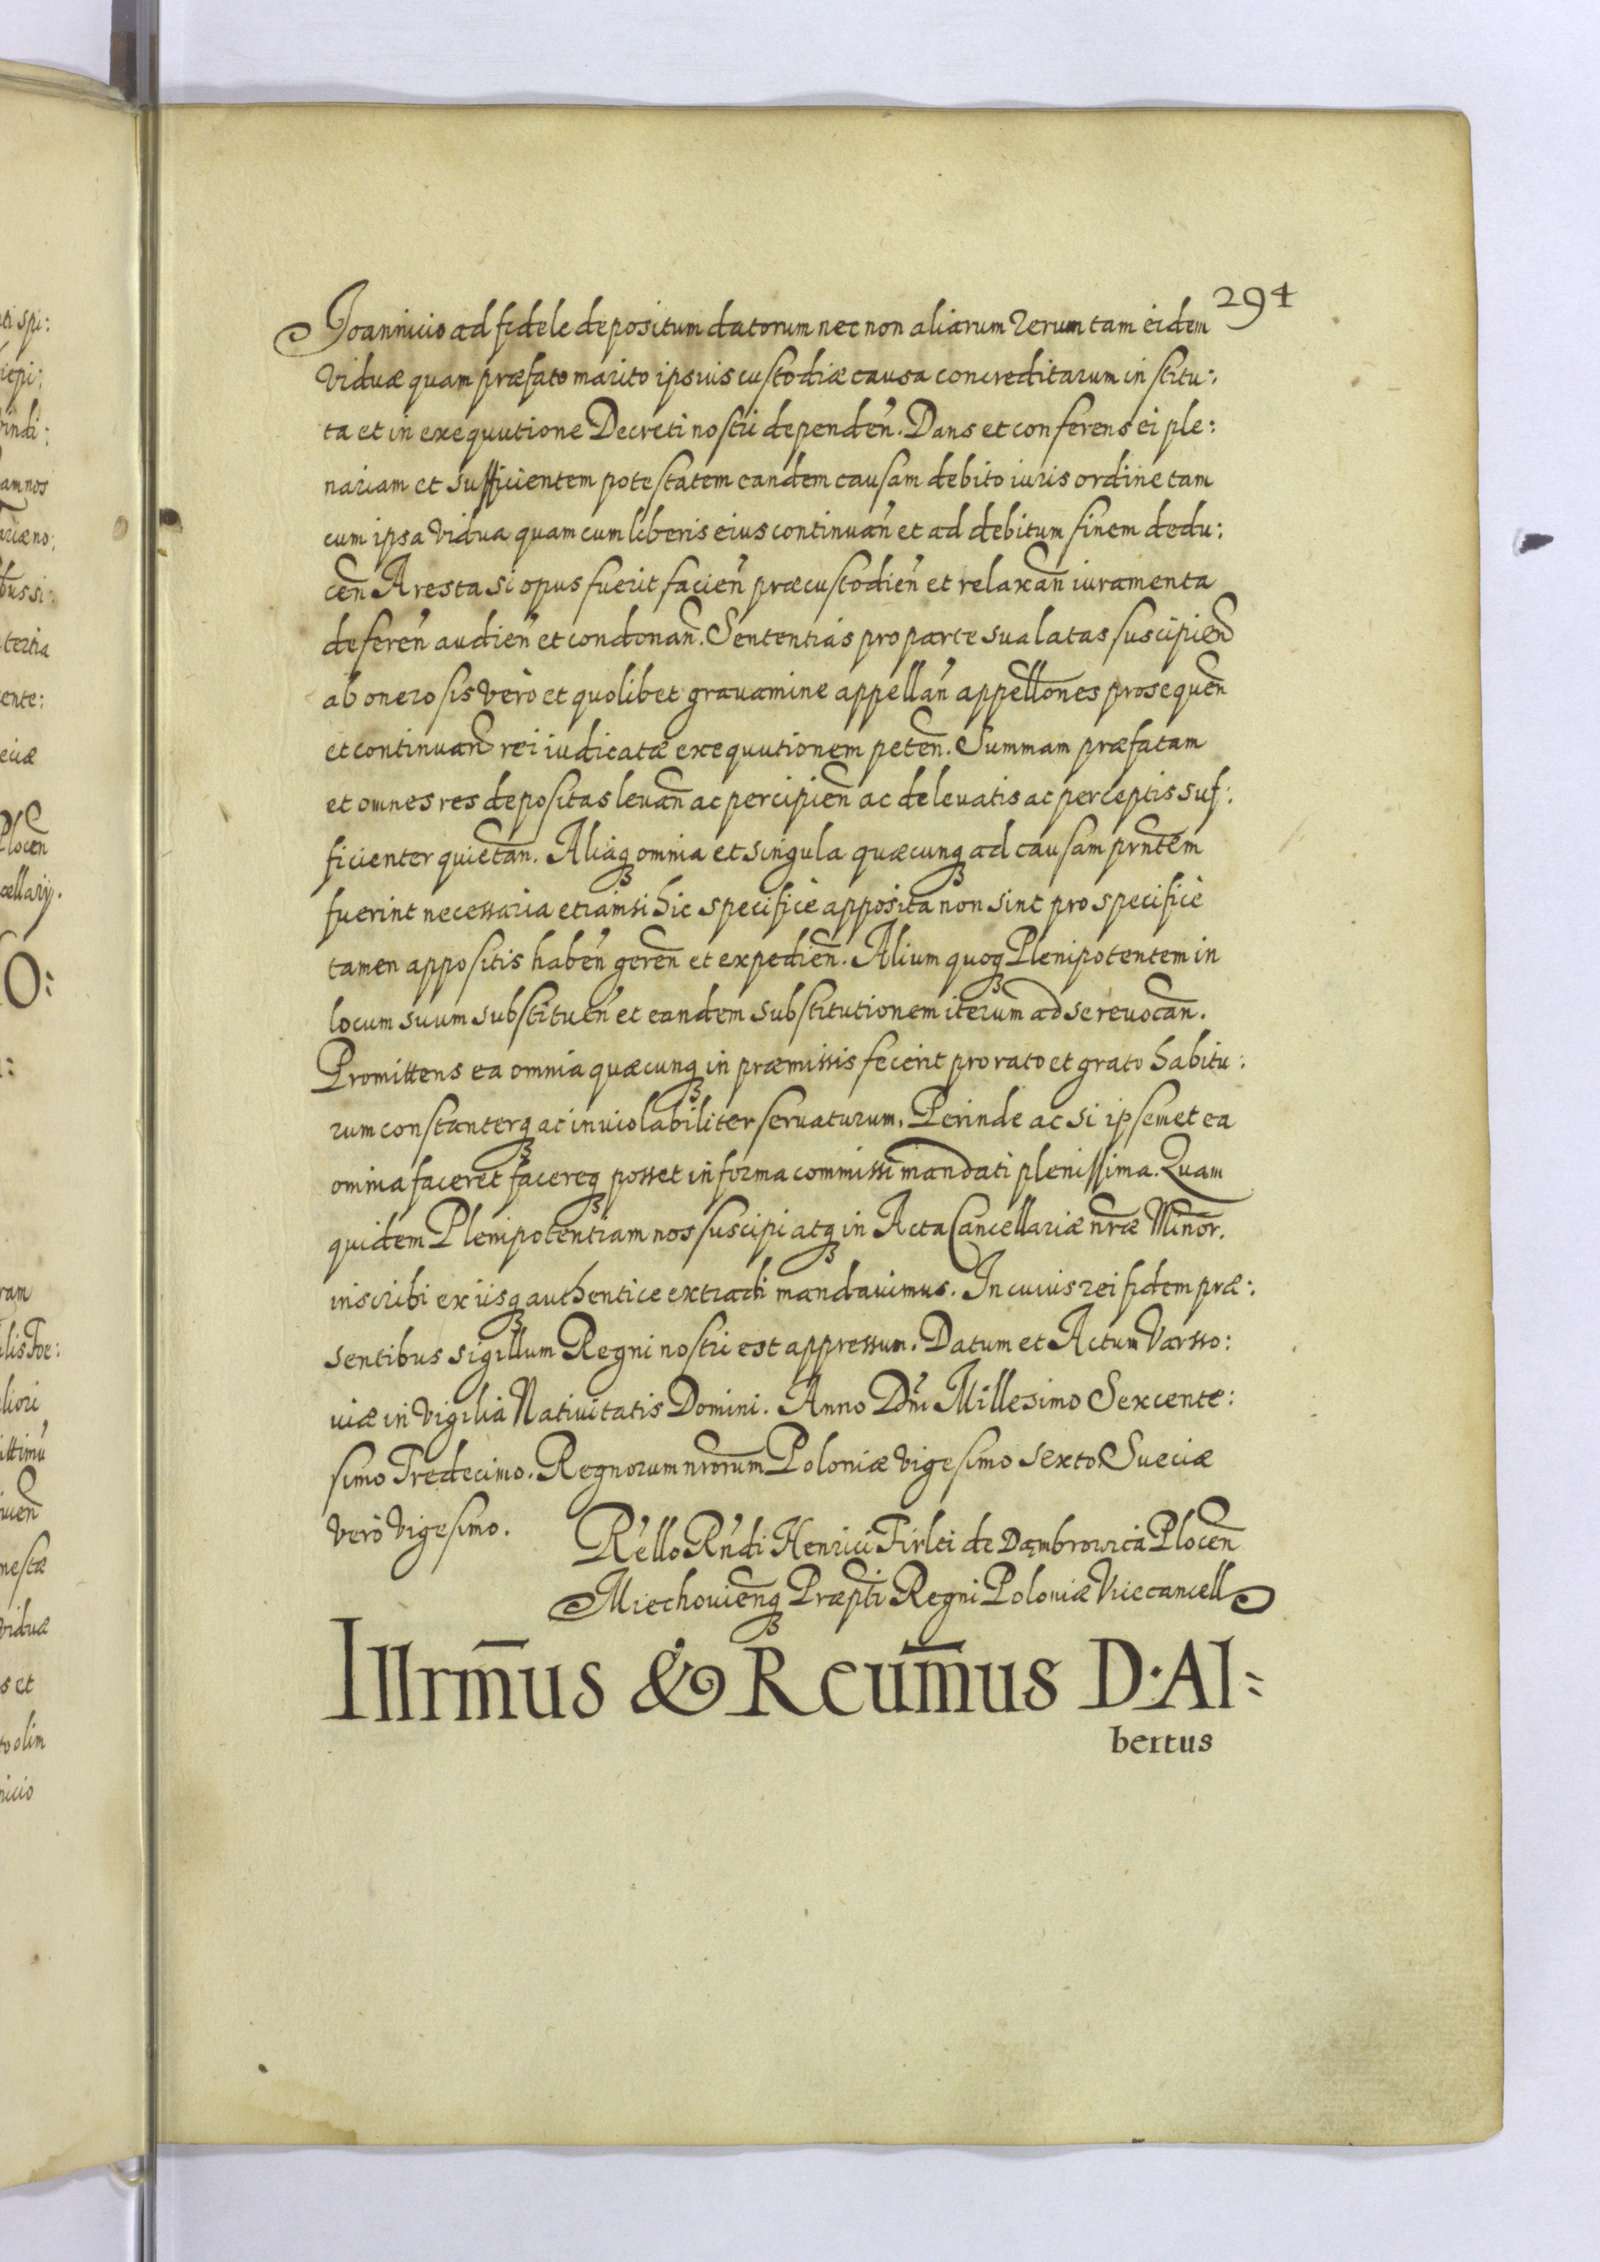 294
Joannicio ad fidele depositum datorum nec non aliarum rerum tam eidem
viduæ quam præfato marito ipsius custodiæ causa concreditarum institu:
ta et in exequutione Decreti nostri dependeñ. Dans et conferens ei ple:
nariam et sufficientem potestatem eandem causam debito iuris ordine tam
cum ipsa vidua quam cum liberis eius continuañ et ad debitum finem dedu:
ceñ Aresta si opus fuerit facieñ præcustodieñ et relaxañ iuramenta
defereñ audieñ et condonañ. Sententias pro parte sua latas suscipieñ
ab onerosis verò et quolibet gravamine appellañ appellõnes prosequeñ
et continuañ rei iudicatæ exequutionem peteñ. Summam præfatam
et omnes res depositas levañ ac percipieñ ac de levatis ac perceptis suf:
ficienter quietañ. Aliaqꝫ omnia et singula quæcunqꝫ ad causam prñtem
fuerint necessaria etiamsi hic specificè apposita non sint pro specificè
tamen appositis habeñ gereñ et expedieñ. Alium quoqꝫ Plenipotentem in
locum suum substitueñ et eandem substitutionem iterum ad se revocañ.
Promittens ea omnia quæcunqꝫ in præmissis fecerit pro rato et grato habitu:
rum constanterqꝫ ac inviolabiliter servaturum. Perinde ac si ipsemet ea
omnia faceret facereqꝫ posset in forma commissi mandati plenissima. Quam
quidem Plenipotentiam nos suscipi atqꝫ in Acta Cancellariæ nr̃æ Minor.
inscribi ex iisqꝫ authentice extradi mandavimus. In cuius rei fidem præ:
sentibus sigillum Regni nostri est appressum. Datum et Actum Varsso:
viæ in Vigilia Nativitatis Domini. Anno Dñi Millesimo Sexcente:
simo Tredecimo. Regnorum nr̃orum Poloniæ Vigesimo sexto Sueciæ
verò Vigesimo.
R'ello R'ndi Henrici Firlei de Dąmbrowica Ploceñ
Miechovieñqꝫ Præpti Regni Poloniæ Vicecancell
Illrm̃us & Reum̃us D. Al:
bertus